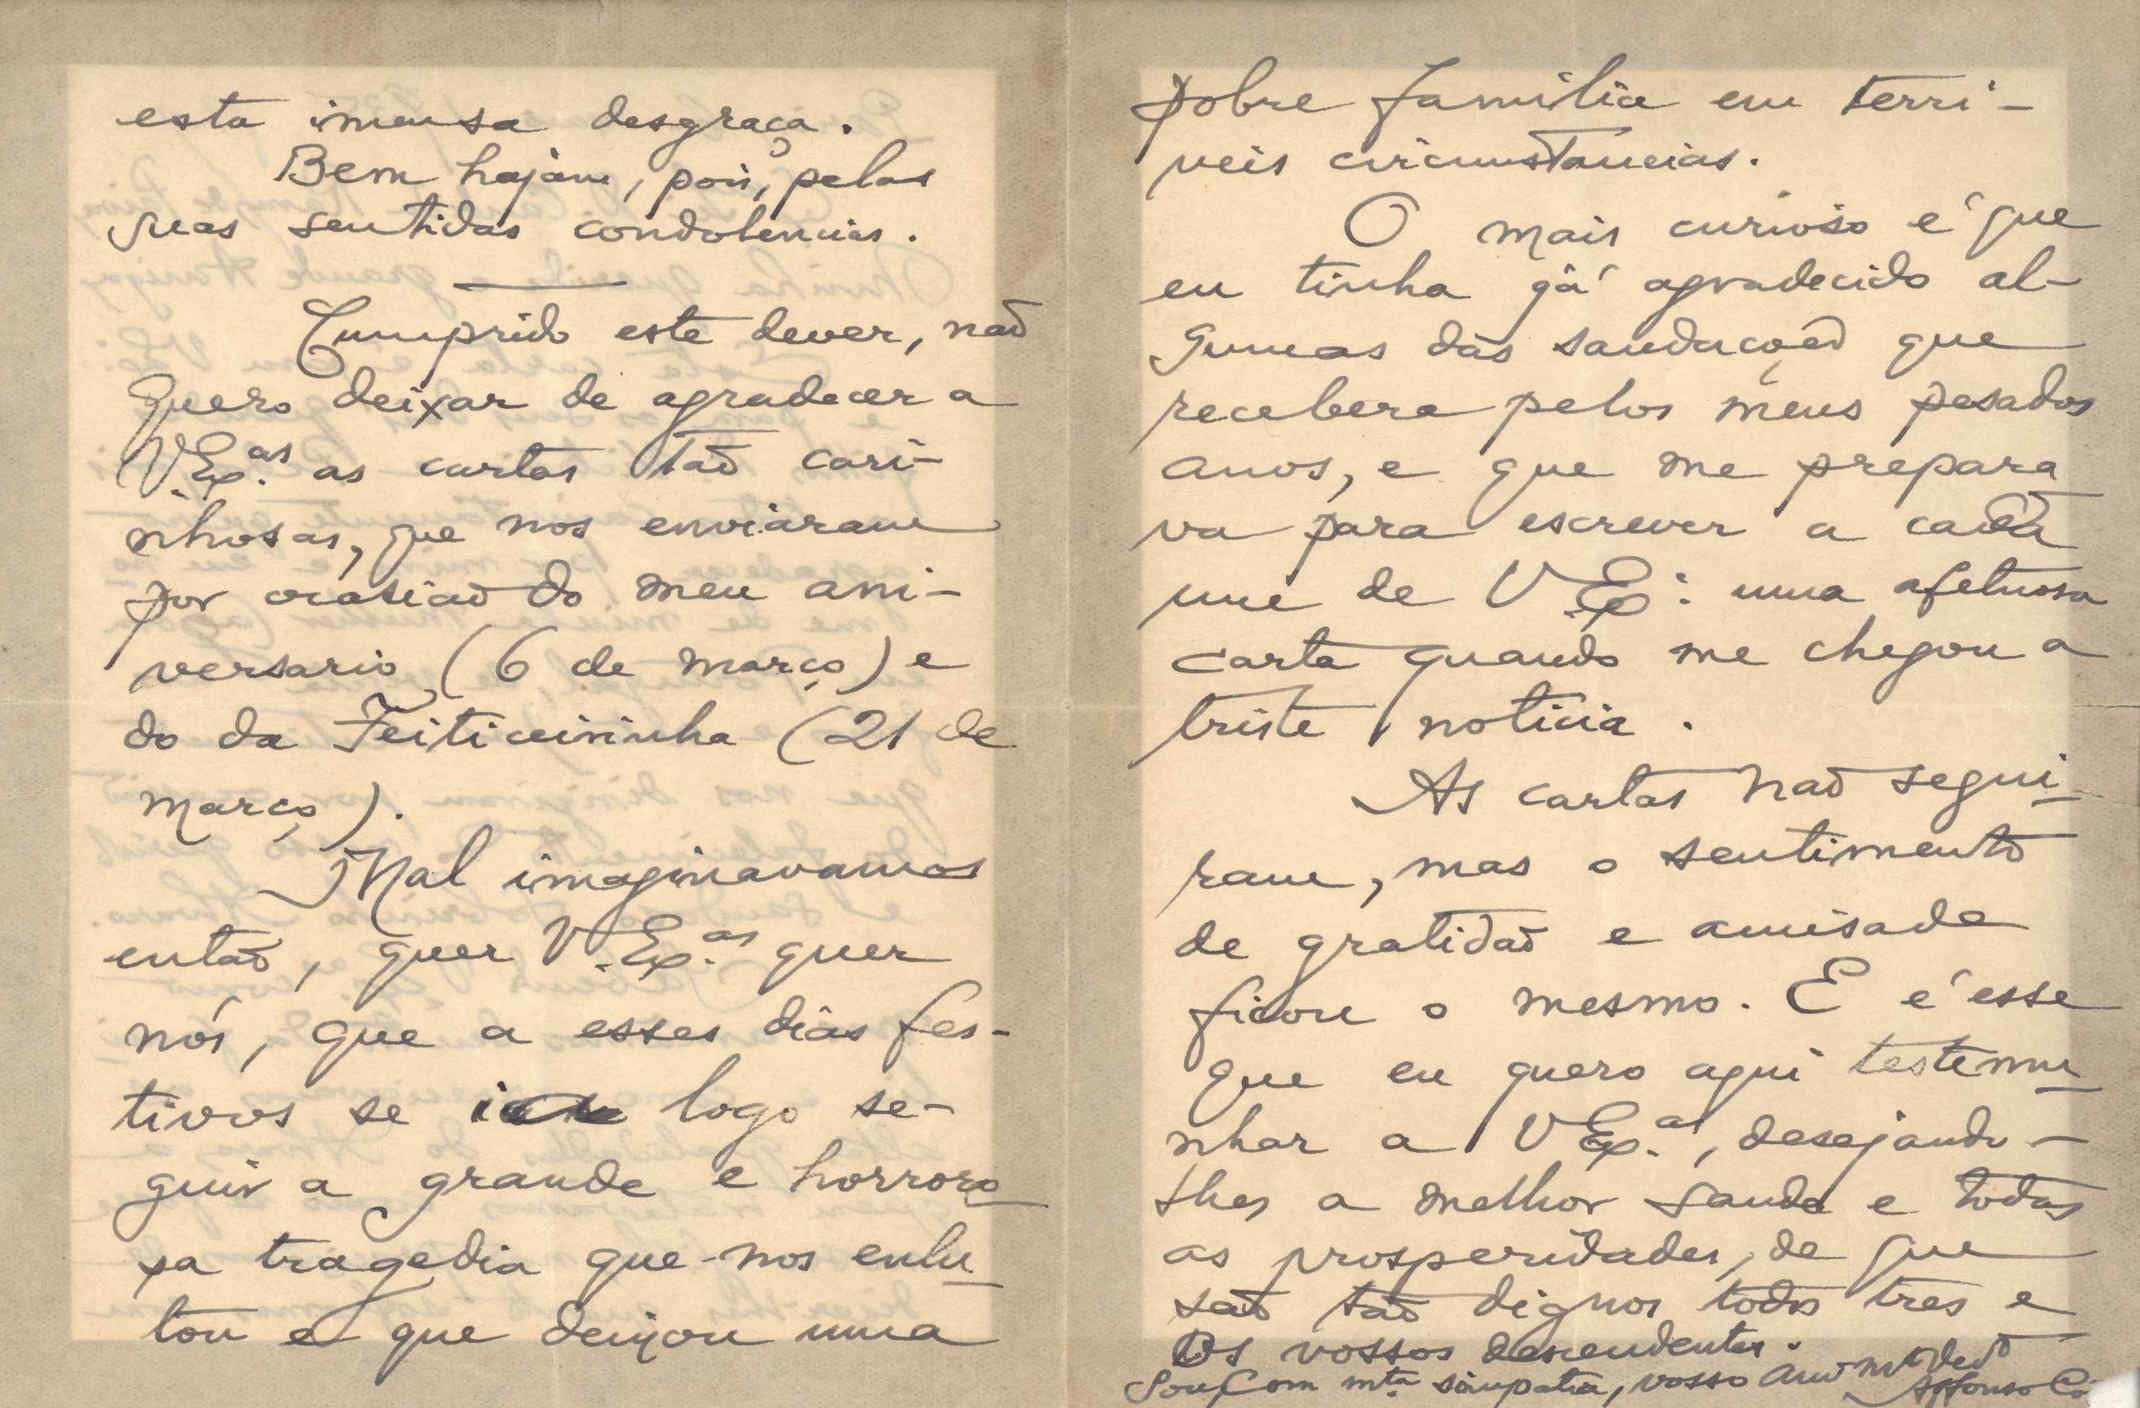 esta imensa desgraça.
Bem hajam, pois, pelas
suas sentidas condolencias.
Cumprido este dever, não
quero deixar de agradecer a
V. Ex.as as cartas tão cari-
nhosas, que nos enviaram
por ocasião do meu ani-
versario (6 de março) e
do da Feiticeirinha (21 de
março).
Mal imaginavamos
então, quer V. Ex.as quer
nós, que a esses dias fes-
tivos se ia logo se-
guir a grande e horroro
sa tragedia que nos enlu-
tou e que deixou uma
pobre familia em terri-
veis circumstancias.
O mais curioso é que
eu tinha já agradecido al-
gumas das saudações que
recebera pelos meus pesados
anos, e que me prepara
va para escrever a cada
um de V. Ex.: uma afetuosa
carta quando me chegou a
triste noticia.
As cartas não segui-
ram, mas o sentimento
de gratidão e amisade
ficou o mesmo. E é esse
que eu quero aqui testemu-
nhar a V Ex.as, desejando-
lhes a melhor saude e todas
as prosperidades, de que
são tão dignos todos tres e
os vossos descendentes.
Sou com mta simpatia, vosso Amo mto Dedo
Affonso Co